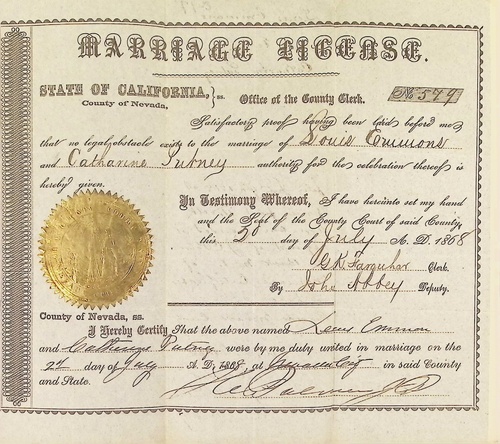 MARRIAGE LICENSE.
STATE OF CALIFORNIA, } ss. Office of the County Clerk. No 549
County of Nevada,
Satisfactory proof having been laid before me
that no legal obstacle exists to the marriage of Louis Emmons
and Catharine Putney authority for the celebration thereof is
hereby given.
In Testimony Whereof, I have hereinto set my hand
and the Seal of the County Court of said County,
this 2d day of July A. D. 1868
Farquhar Clerk.
By John Abbey Deputy.
County of Nevada, ss.
I Hereby Certify That the above named Louis Emmon
and Catharine Putney were by me duly united in marriage on the
2d day of July A. D. 1868, at in said County
and State.